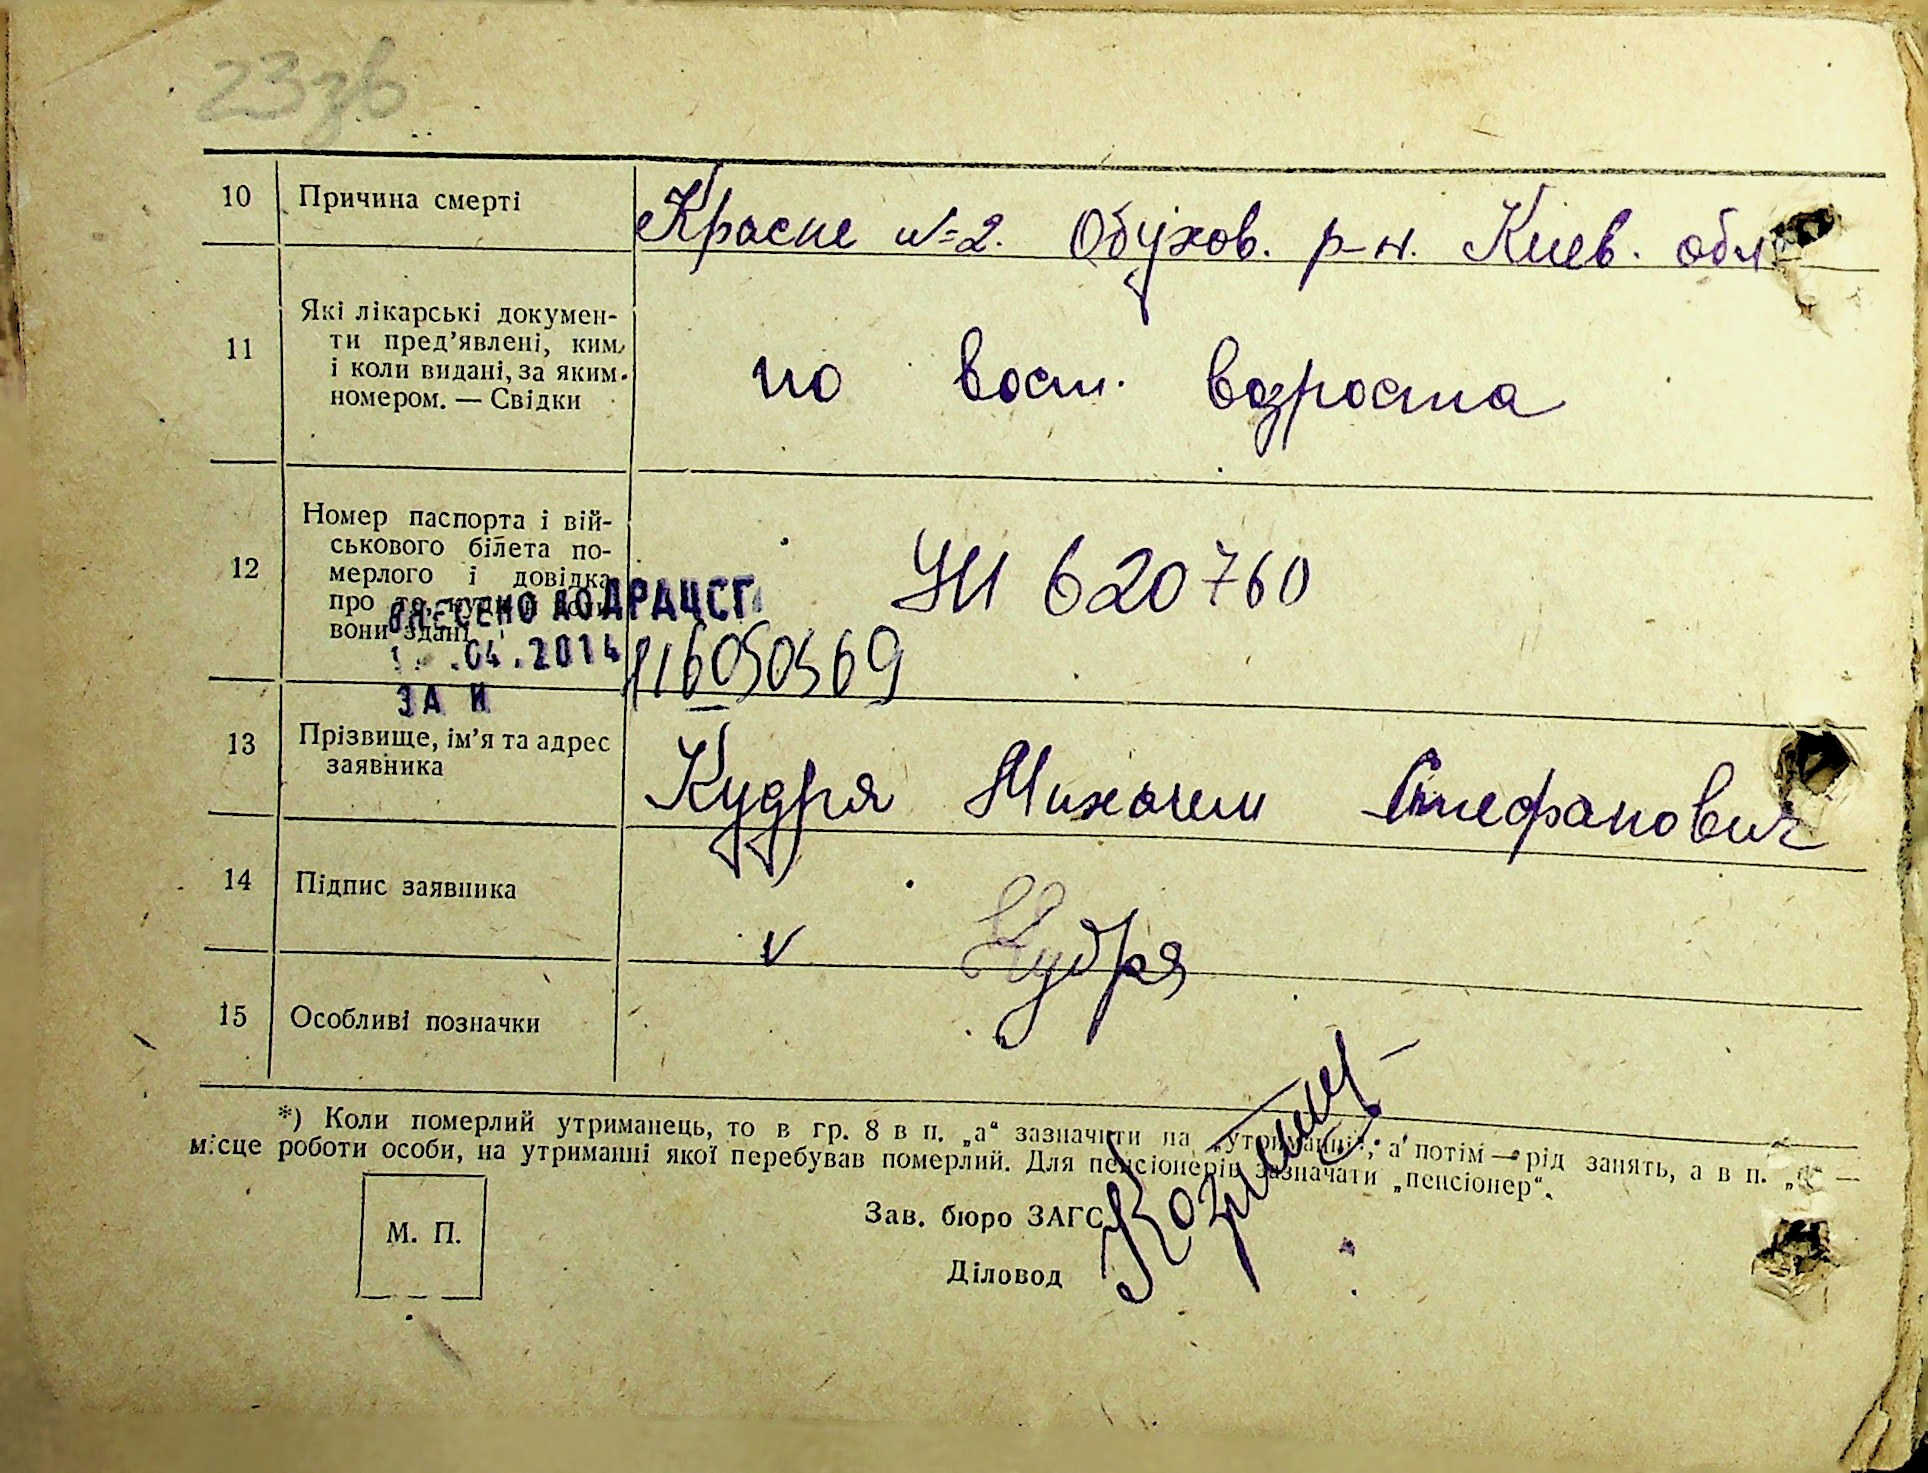 23зв
10 Причина смерті Красне №2. Обухов. р-н. Киев. обл
11 Які лікарські докумен-
ти пред'явлені, ким,
і коли видані, за яким.
номером. — Свідки
по восп. возроста
12 Номер паспорта і вій-
ськового білета по-
мерлого і довідка
про те, куди і коли
вони здані
УИ 620760
ВНЕСЕНО ДО ДРАЦСГ
.04.2014
ЗА №
116050569
13 Прізвище, ім'я та адрес
заявника
Кудря Михаил Стефанович
14 Підпис заявника
v Кудря
15 Особливі позначки
*) Коли померлий утриманець, то в гр. 8 в п. „а“ зазначити на „утриманні“, а потім — рід занять, а в п. „ —
місце роботи особи, на утриманні якої перебував померлий. Для пенсіонерів зазначати „пенсіонер“.
М. П.
Зав. бюро ЗАГС
Діловод